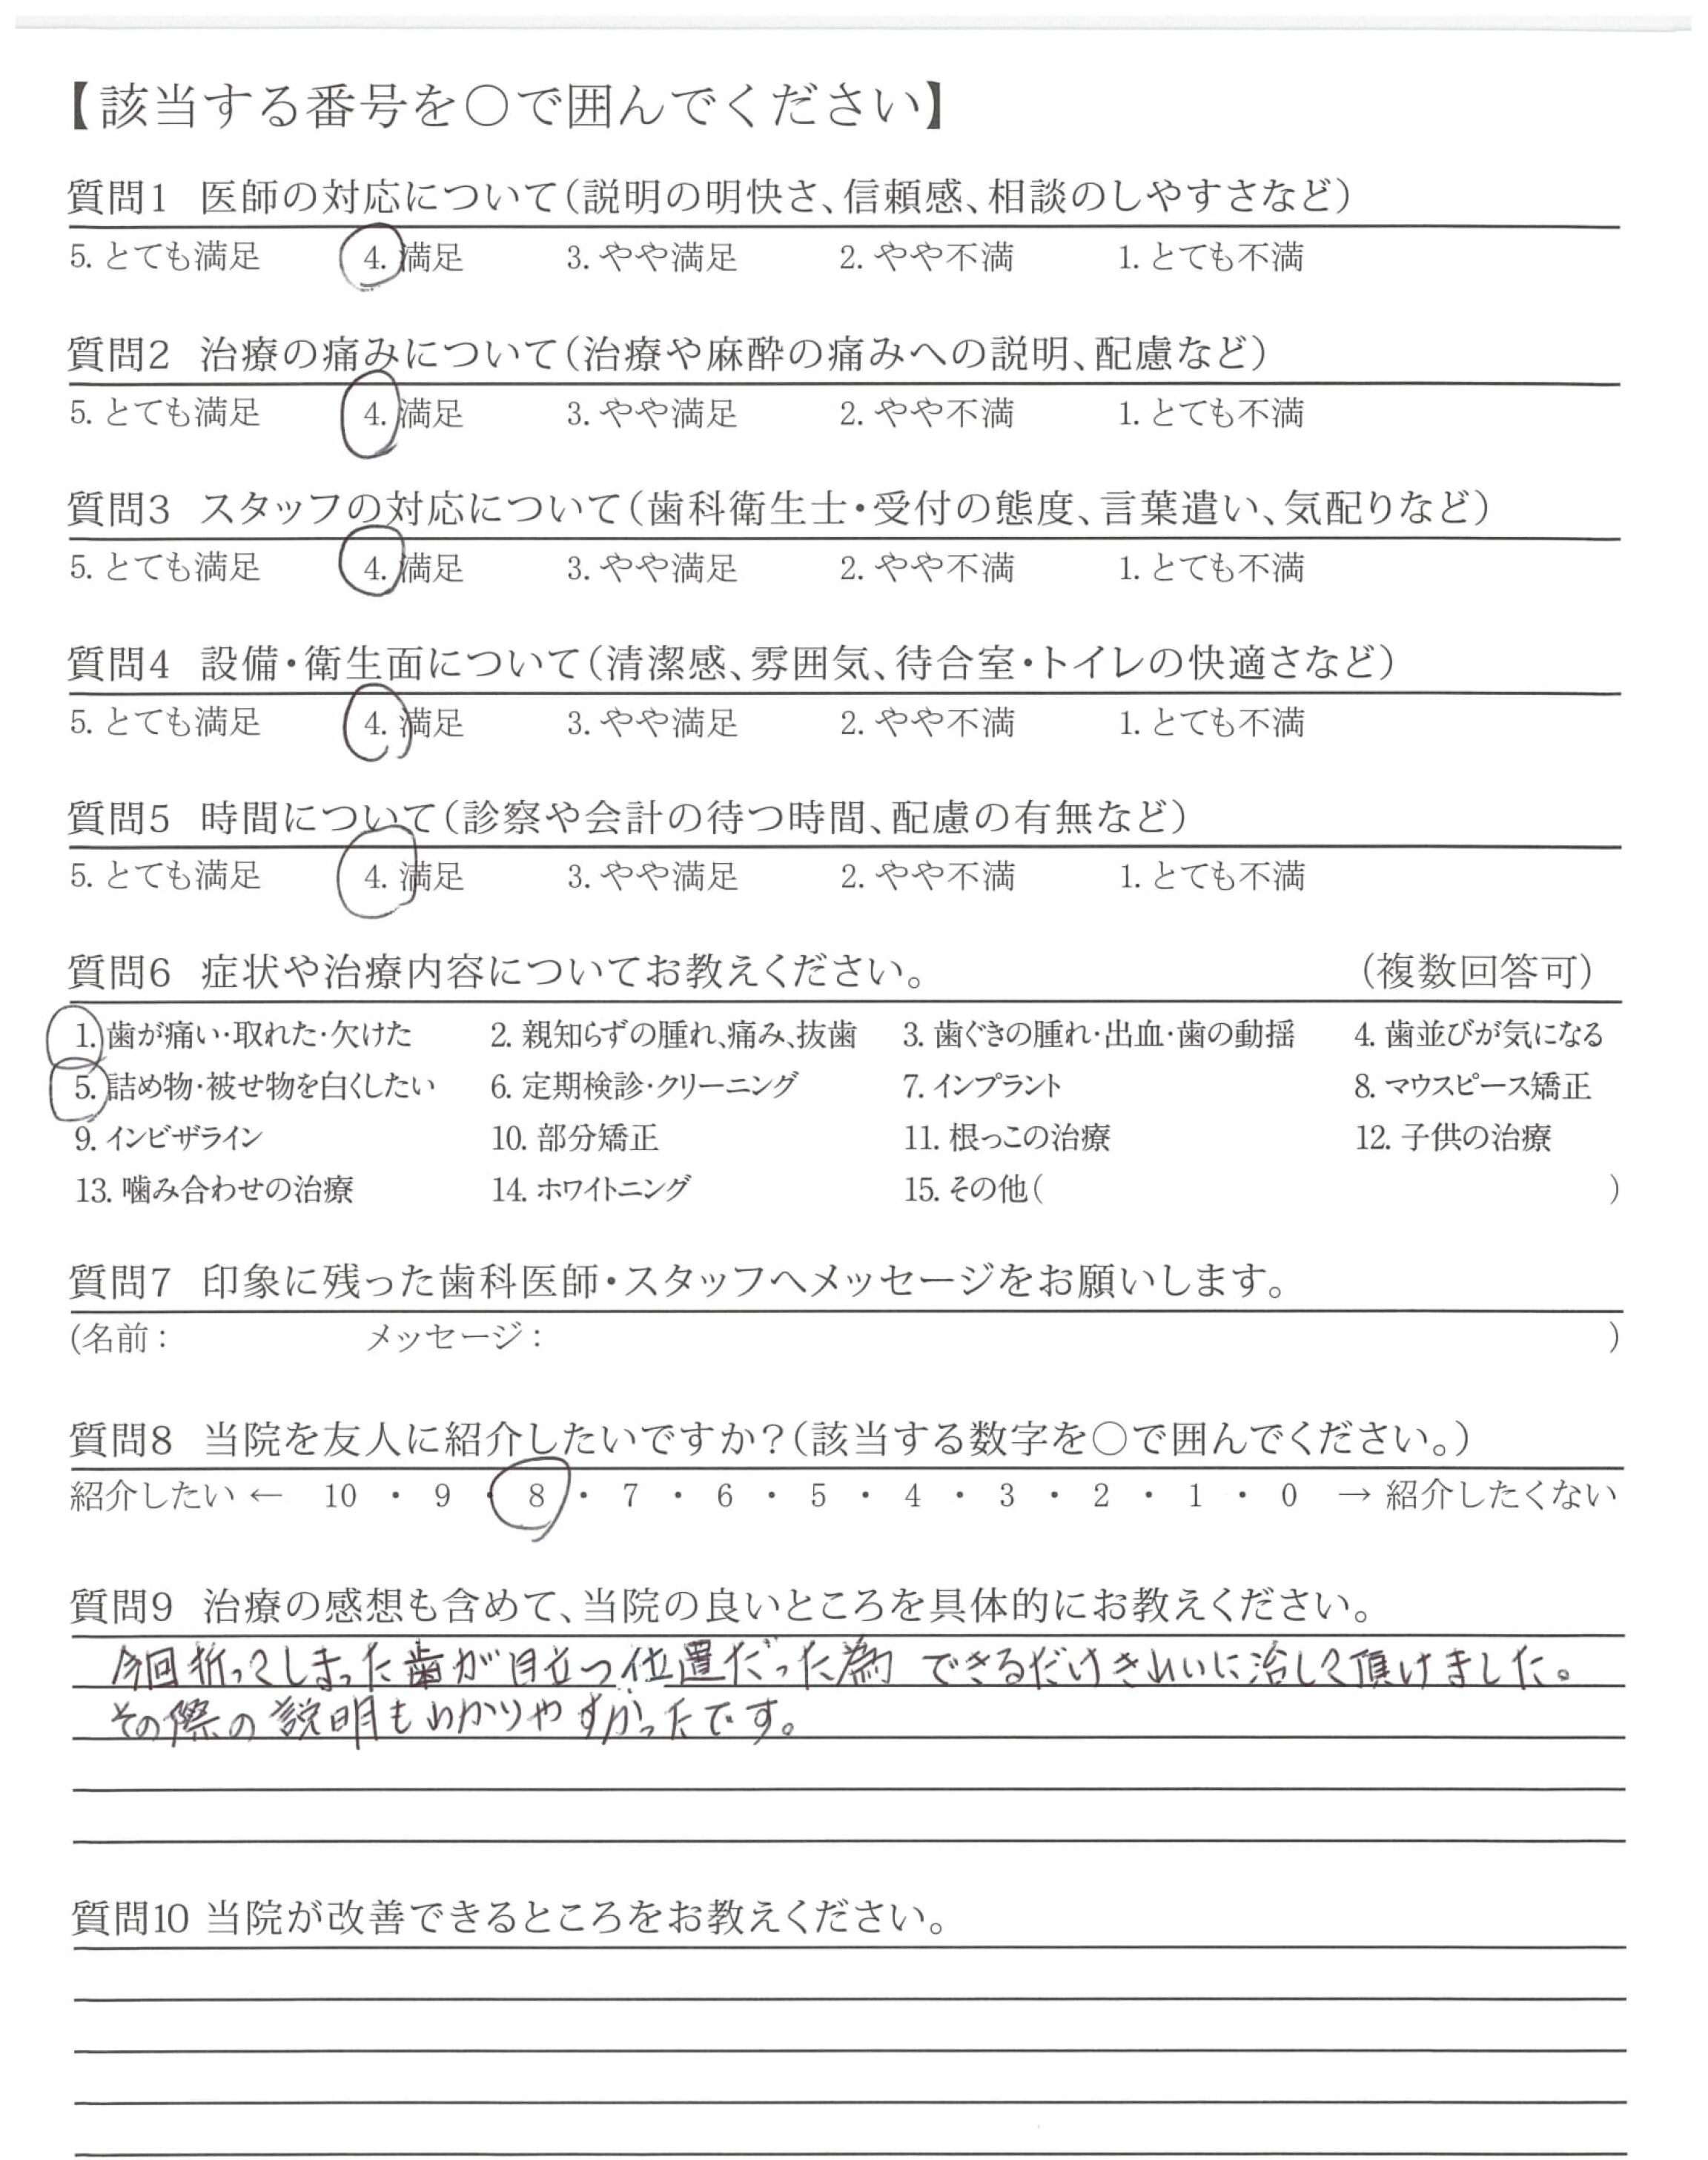 【該当する番号を○で囲んでください】
質問1 医師の対応について(説明の明快さ、信頼感、相談のしやすさなど)
5. とても満足 4. 満足 3. やや満足 2. やや不満 1. とても不満
質問2 治療の痛みについて(治療や麻酔の痛みへの説明、配慮など)
5. とても満足 4. 満足 3. やや満足 2. やや不満 1. とても不満
質問3 スタッフの対応について(歯科衛生士・受付の態度、言葉遣い、気配りなど)
5. とても満足 4. 満足 3. やや満足 2. やや不満 1. とても不満
質問4 設備・衛生面について(清潔感、雰囲気、待合室・トイレの快適さなど)
5. とても満足 4. 満足 3. やや満足 2. やや不満 1. とても不満
質問5 時間について(診察や会計の待つ時間、配慮の有無など)
5. とても満足 4. 満足 3. やや満足 2. やや不満 1. とても不満
質問6 症状や治療内容についてお教えください。 (複数回答可)
1. 歯が痛い・取れた・欠けた 2. 親知らずの腫れ、痛み、抜歯 3. 歯ぐきの腫れ・出血・歯の動揺 4. 歯並びが気になる
5. 詰め物・被せ物を白くしたい 6. 定期検診・クリーニング 7. インプラント 8. マウスピース矯正
9. インビザライン 10. 部分矯正 11. 根っこの治療 12. 子供の治療
13. 噛み合わせの治療 14. ホワイトニング 15. その他( )
質問7 印象に残った歯科医師・スタッフへメッセージをお願いします。
(名前: メッセージ: )
質問8 当院を友人に紹介したいですか?(該当する数字を○で囲んでください。)
紹介したい ← 10 ・ 9 ・ 8 ・ 7 ・ 6 ・ 5 ・ 4 ・ 3 ・ 2 ・ 1 ・ 0 → 紹介したくない
質問9 治療の感想も含めて、当院の良いところを具体的にお教えください。
今回折ってしまった歯が目立つ位置だった為 できるだけきれいに治して頂けました。
その際の説明もわかりやすかったです。
質問10 当院が改善できるところをお教えください。